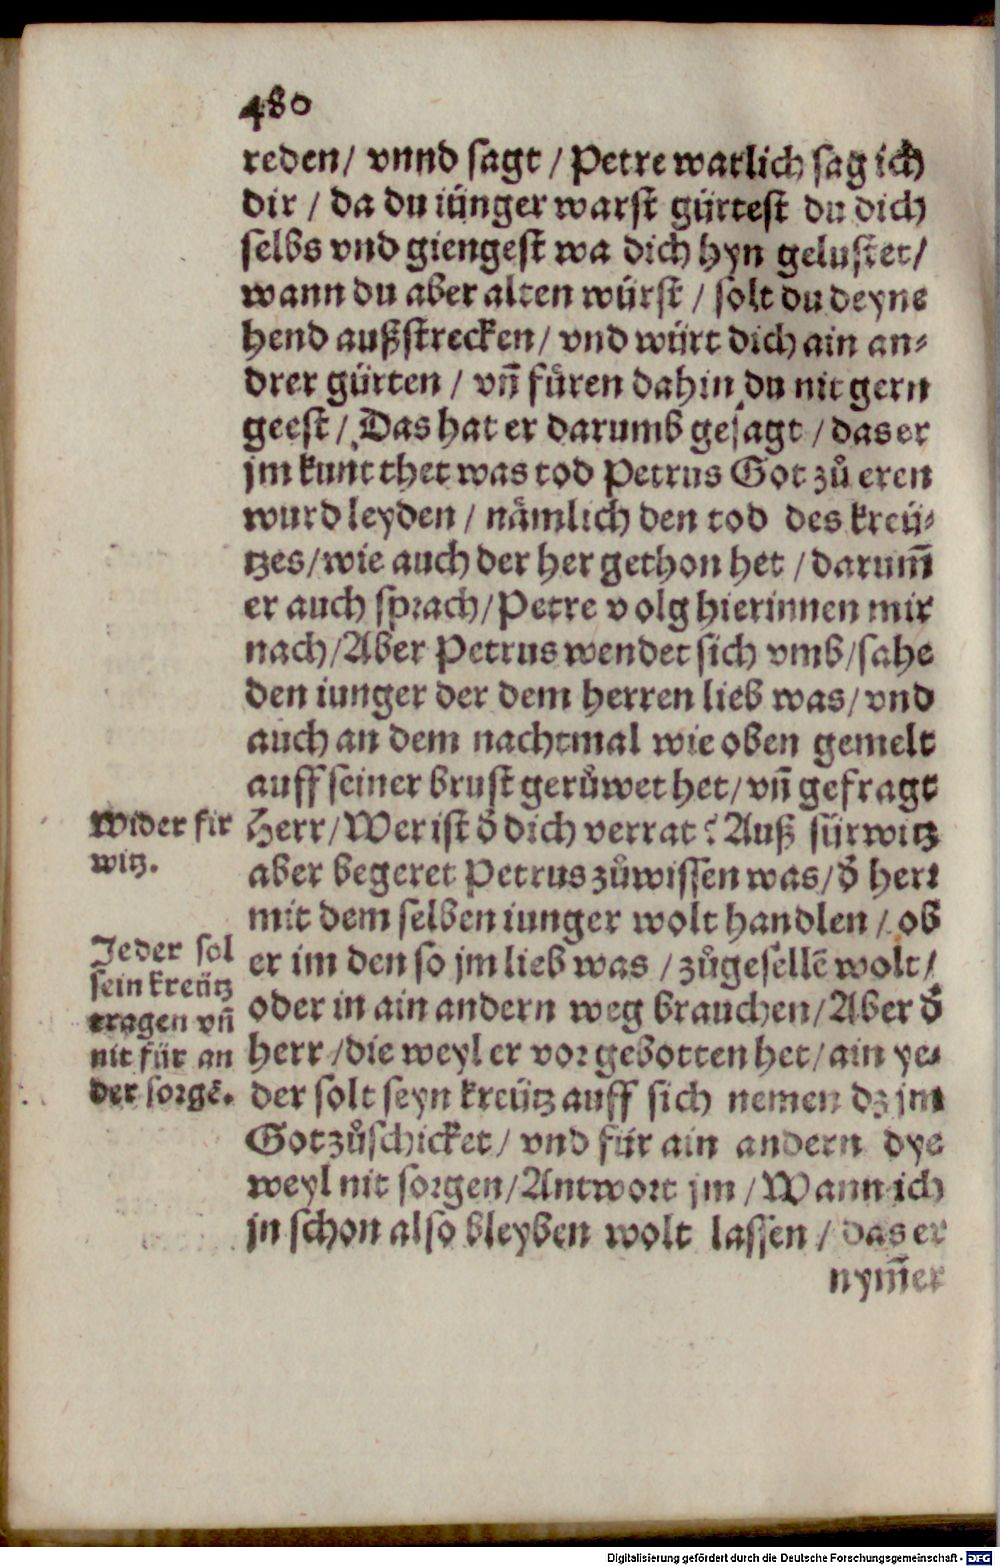 480
reden/ vnnd sagt / Petre warlich sag ich
dir / da du iünger warst gürtest du dich
selbs vnd giengest wa dich hyn gelustet/
wann du aber alten würst / solt du deyne
hend außstrecken/ vnd würt dich ain an⸗
drer gürten / vñ fůren dahin du nit gern
geest / Das hat er darumb gesagt / das er
jm kunt thet was tod Petrus Got zů eren
wurd leyden / nämlich den tod des kreü⸗
tzes/wie auch der her gethon het / darum̃
er auch sprach/Petre volg hierinnen mir
nach/Aber Petrus wendet sich vmb/sahe
den iunger der dem herren lieb was/ vnd
auch an dem nachtmal wie oben gemelt
auff seiner brust gerůwet het/ vñ gefragt
Wider fir
witz.
Herr/Wer ist d̕ dich verrat? Auß fürwitz
aber begeret Petrus zůwissen was/d̕ herr
mit dem selben iunger wolt handlen / ob
Jeder sol
sein kreütz
tragen vñ
nit für an
der sorgẽ.
er im den so jm lieb was / zůgesellẽ wolt/
oder in ain andern weg brauchen/Aber d̕
herr /die weyl er vor gebotten het/ ain ye⸗
der solt seyn kreütz auff sich nemen dz jm
Got zůschicket/ vnd für ain andern dye
weyl nit sorgen/Antwort jm / Wann ich
jn schon also bleyben wolt lassen / das er
nym̃er
Digitalisierung gefördert durch die Deutsche Forschungsgemeinschaft - DFG